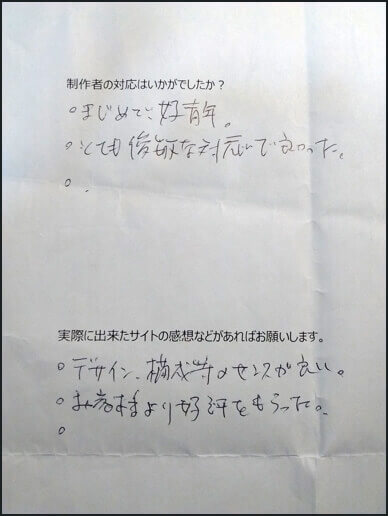 制作者の対応はいかがでしたか？
○まじめで、好青年。
○とても俊敏な対応で良かった。
○.
実際に出来たサイトの感想などがあればお願いします。
○デザイン、構成等のセンスが良い。
○お客様より好評をもらった。
○